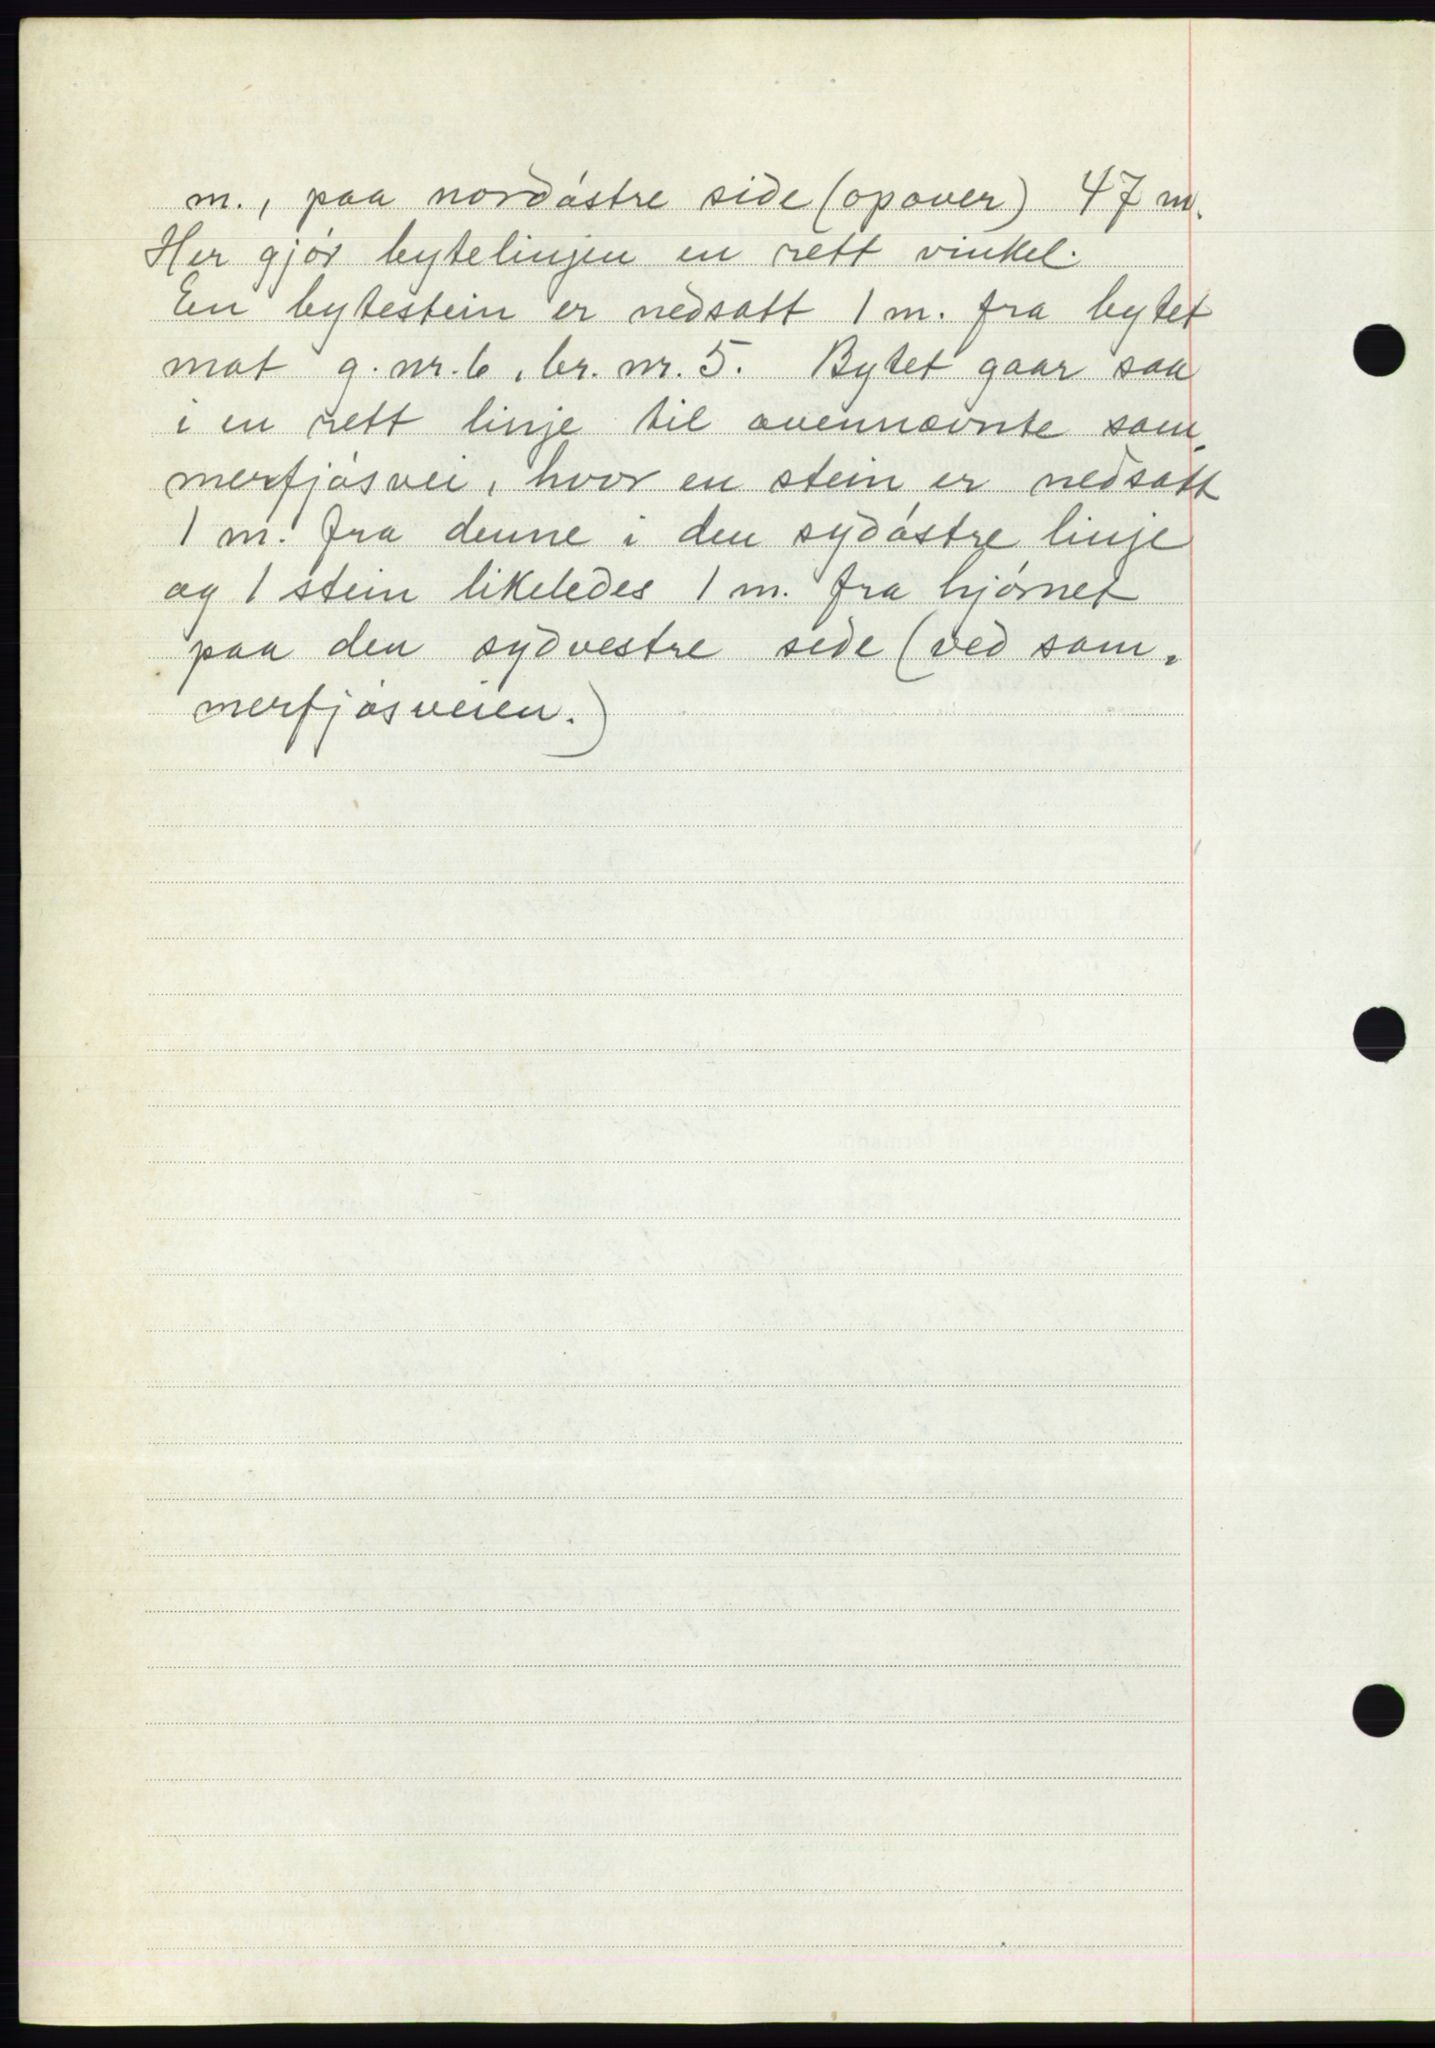 m., paa nordóstre side (opover) 47 m.
Her gjór bytelinjen en rett vinkel.
En bytestein er nedsatt 1 m. fra bytet
mot g. nr. 6, br. nr. 5. Bytet gaar saa
i en rett linje til ovennævnte som-
merfjósvei, hvor en stein er nedsatt
1 m. fra denne i den sydóstre linje
og 1 stein likeledes 1 m. fra hjórnet
paa den sydvestre side (ved som-
merfjósveien.)